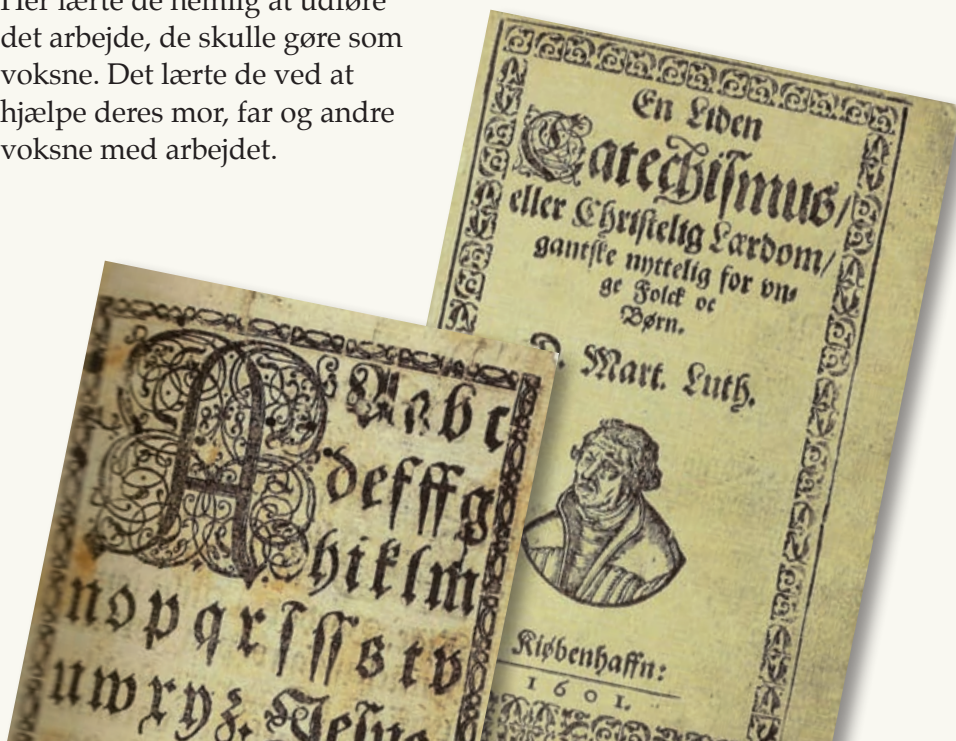 Her lærte de nemlig at udføre
det arbejde, de skulle gøre som
voksne. Det lærte de ved at
hjælpe deres mor, far og andre
voksne med arbejdet.
En Liden
Catechiſmus/
eller Chriſtelig Lærdom/
gantſke nyttelig for vn⸗
ge Folck oc
Børn.
D. Mart. Luth.
Kiøbenhaffn:
1601.
A Aabc
defffg
hiklm
nopqrſſſstv
uwxyz. Jeſus